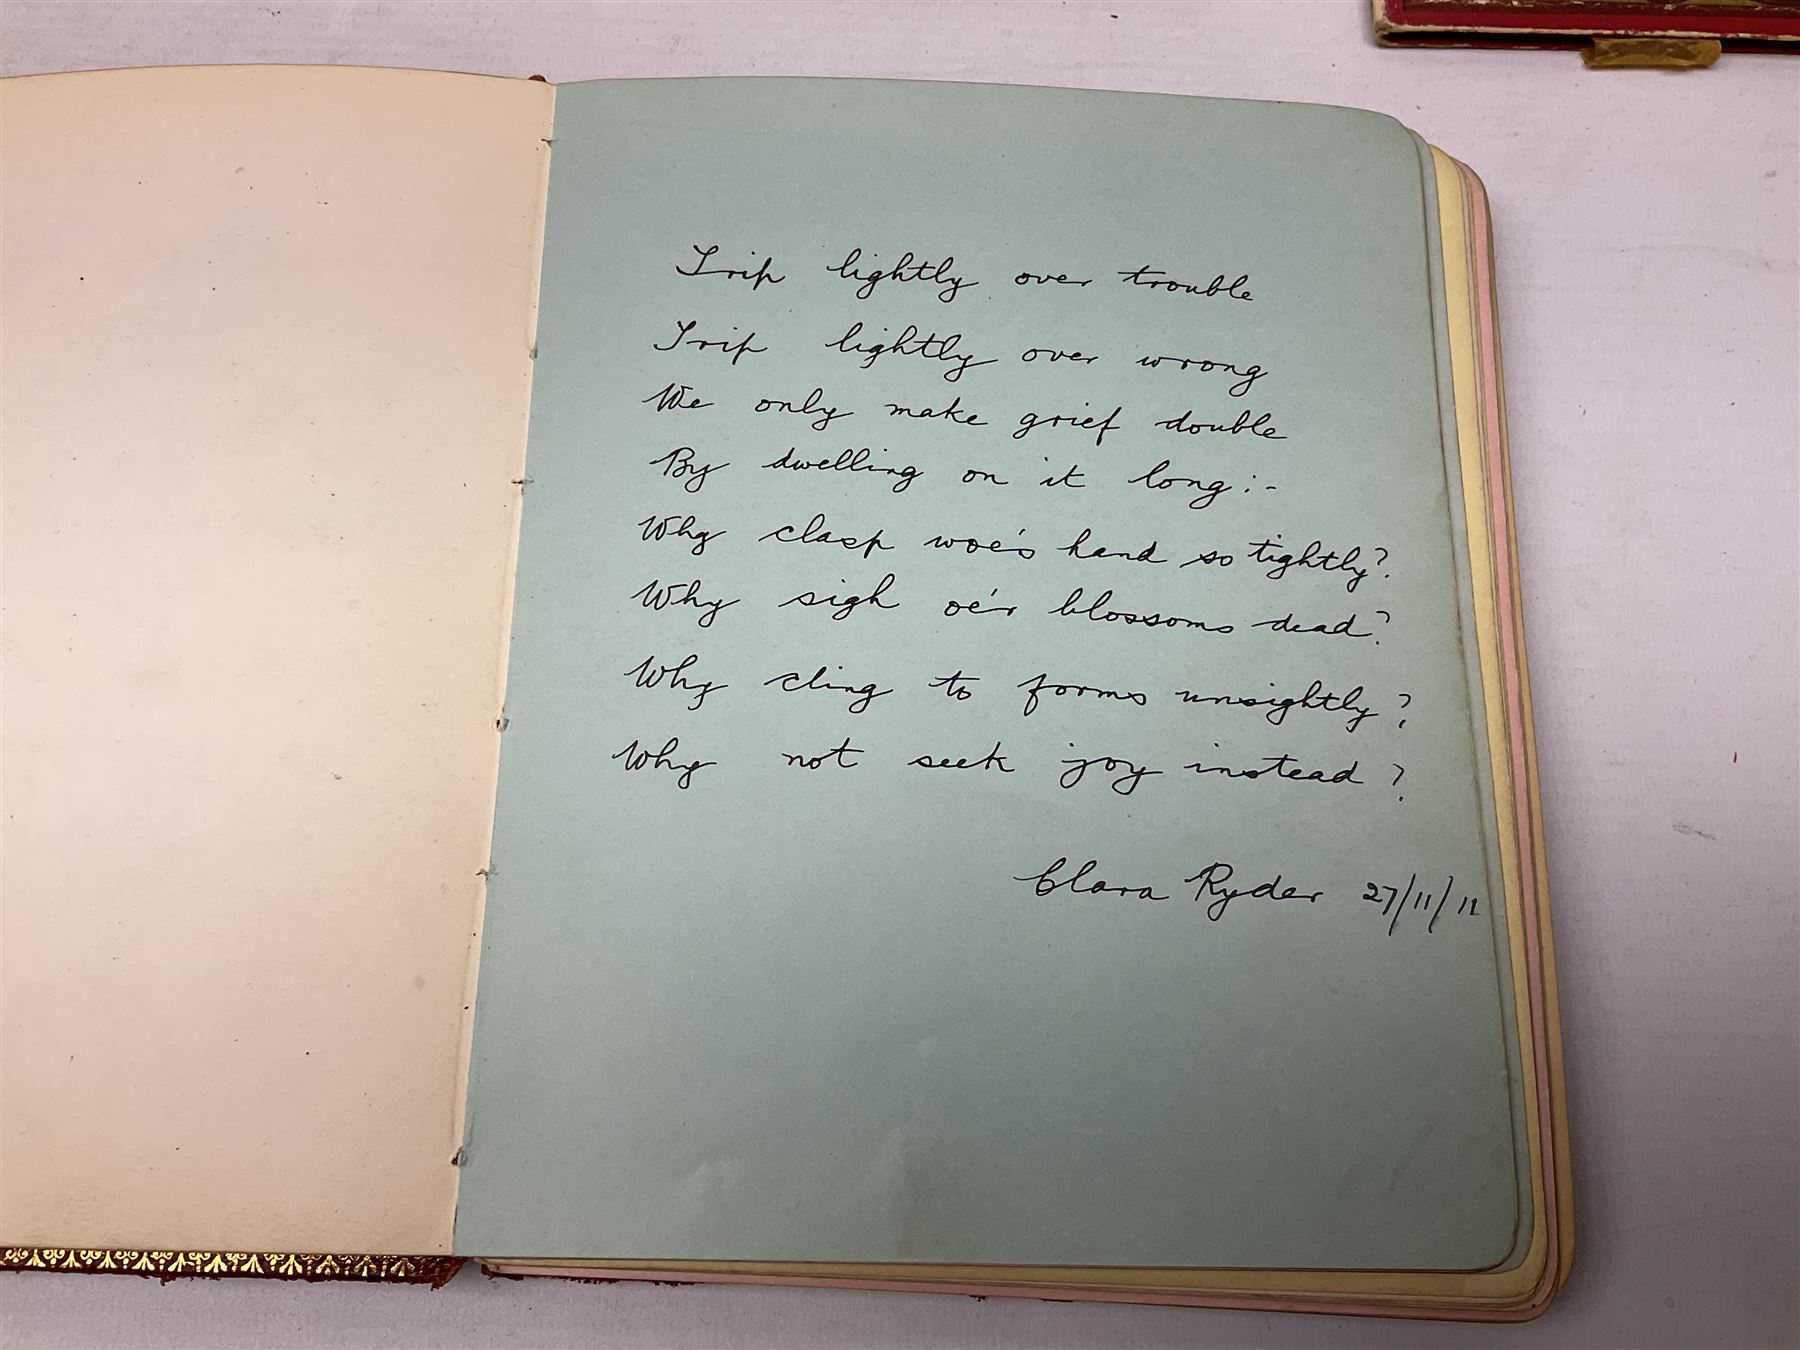 Trip lightly over trouble
Trip lightly over wrong
We only make grief double
By dwelling on it long:-
Why clasp woe's hand so tightly?
Why sigh oe'r blossoms dead?
Why cling to forms unsightly?
Why not seek joy instead?
Clara Ryder 27/11/11